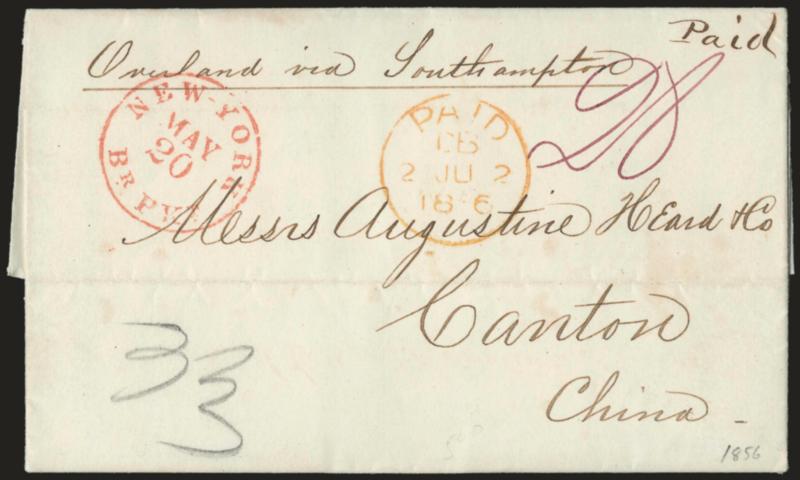 Paid
Overland via Southampton
28
NEW-YORK
MAY
20
BR PKT
PAID
CB
2 JU 2
18 6
Messrs Augustine Heard & Co
Canton
China
33
1856